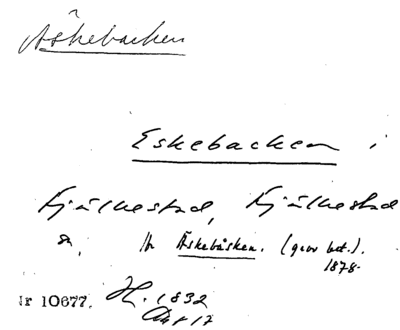 Äskebacken
Eskebacken i
Fjälkestad, Fjälkestad
sn, Äskebåsken. (grov bet.).
1878.
Ir 10677. H. 1832
Akt 17